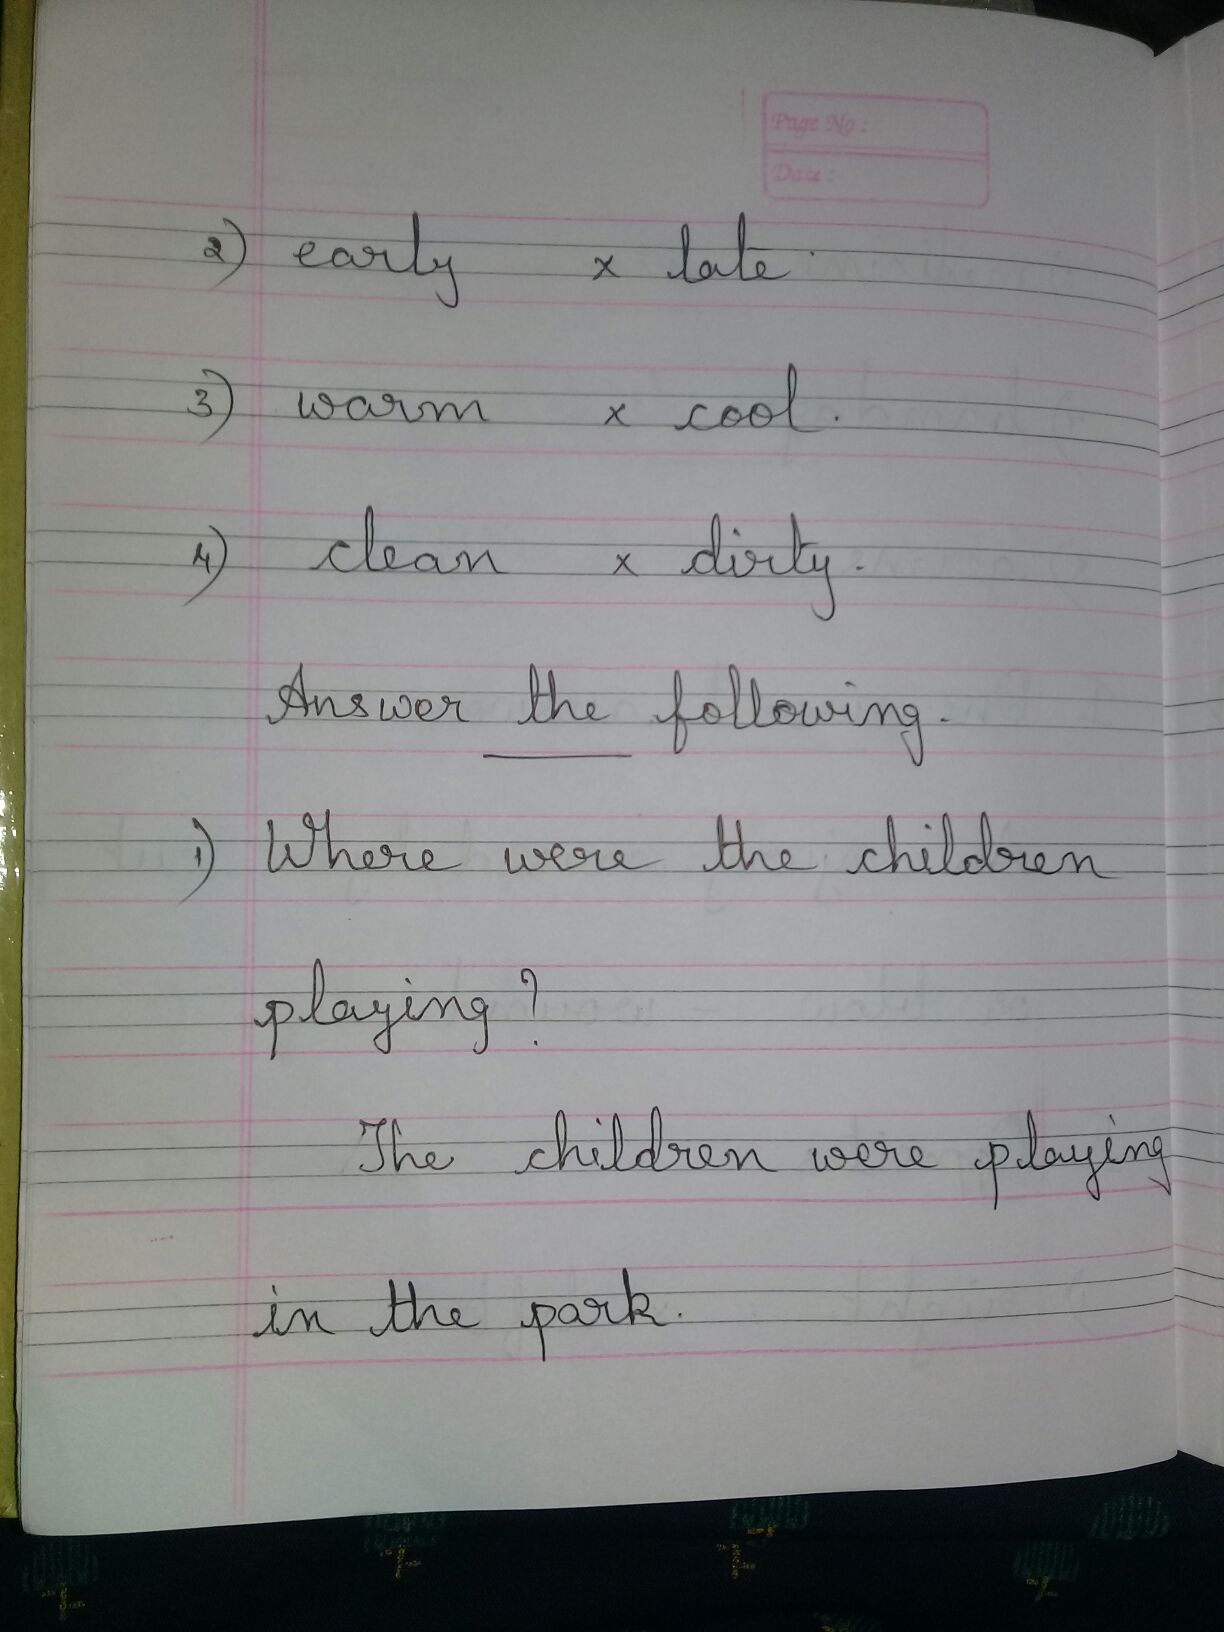 Page No :
Date :
2) early x late.
3) warm x cool.
4) clean x dirty.
Answer the following.
1) Where were the children
playing?
The children were playing
in the park.